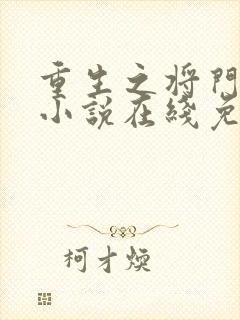 重生之将門
小説在綫免
柯才煥